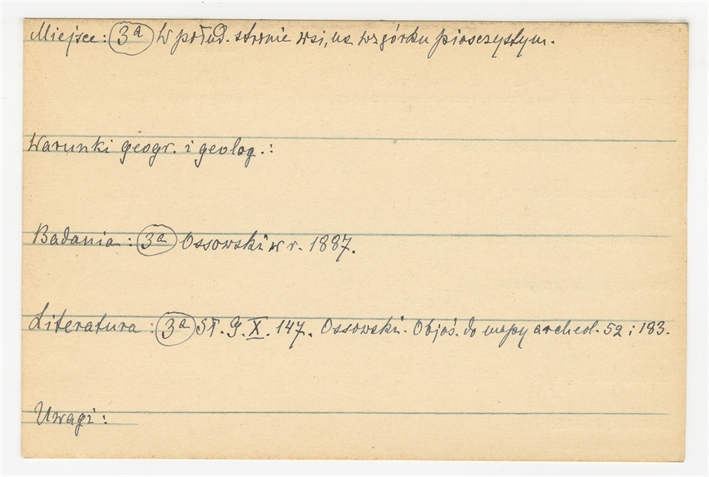 Miejsce: 3a W połud. stronie wsi, na wzgórku piasczystym.
Warunki geogr. i geolog.:
Badania: 3a Ossowski w r. 1887.
Literatura: 3a Sł. g. X. 147. Ossowski. Objaś. do mapy archeol. 52 i 183.
Uwagi: